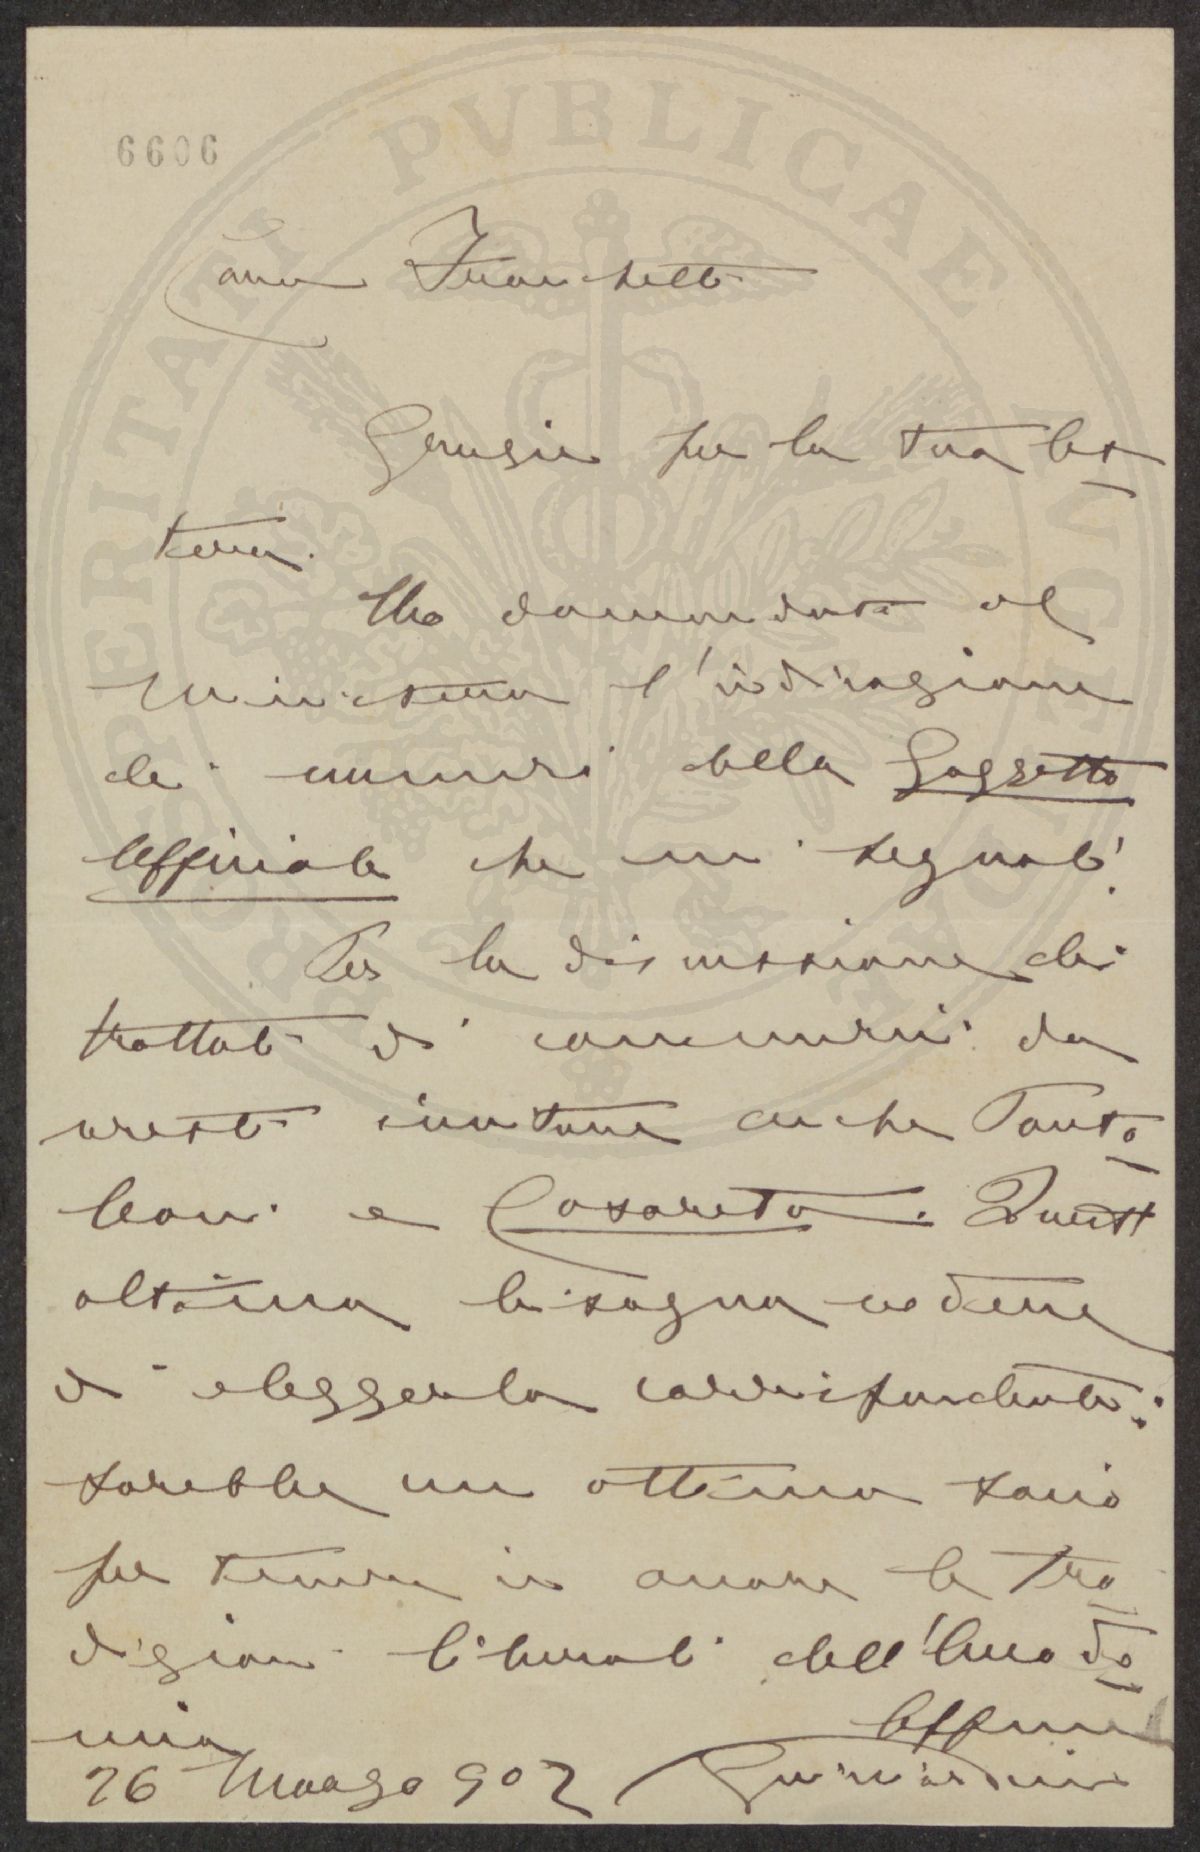 6606
Caro Franchetti
Grazie per la tua let
tera.
Ho domandato al
Ministero l'indicazione
dei numeri della Gazzetta
Ufficiale che mi segnali.
Per la discussione dei
trattati di commercio do
vresti invitare anche Panta
leoni e Casareto. Quest'
ultimo bisogna vedere
di eleggerlo corrispondente:
sarebbe un ottimo socio
per tenere in onore le tra
dizioni liberali dell'Accade
mia
Affmo
26 Marzo 902
GEORGOFILI PROSPERITATI PVBLICAE AVGENDAE